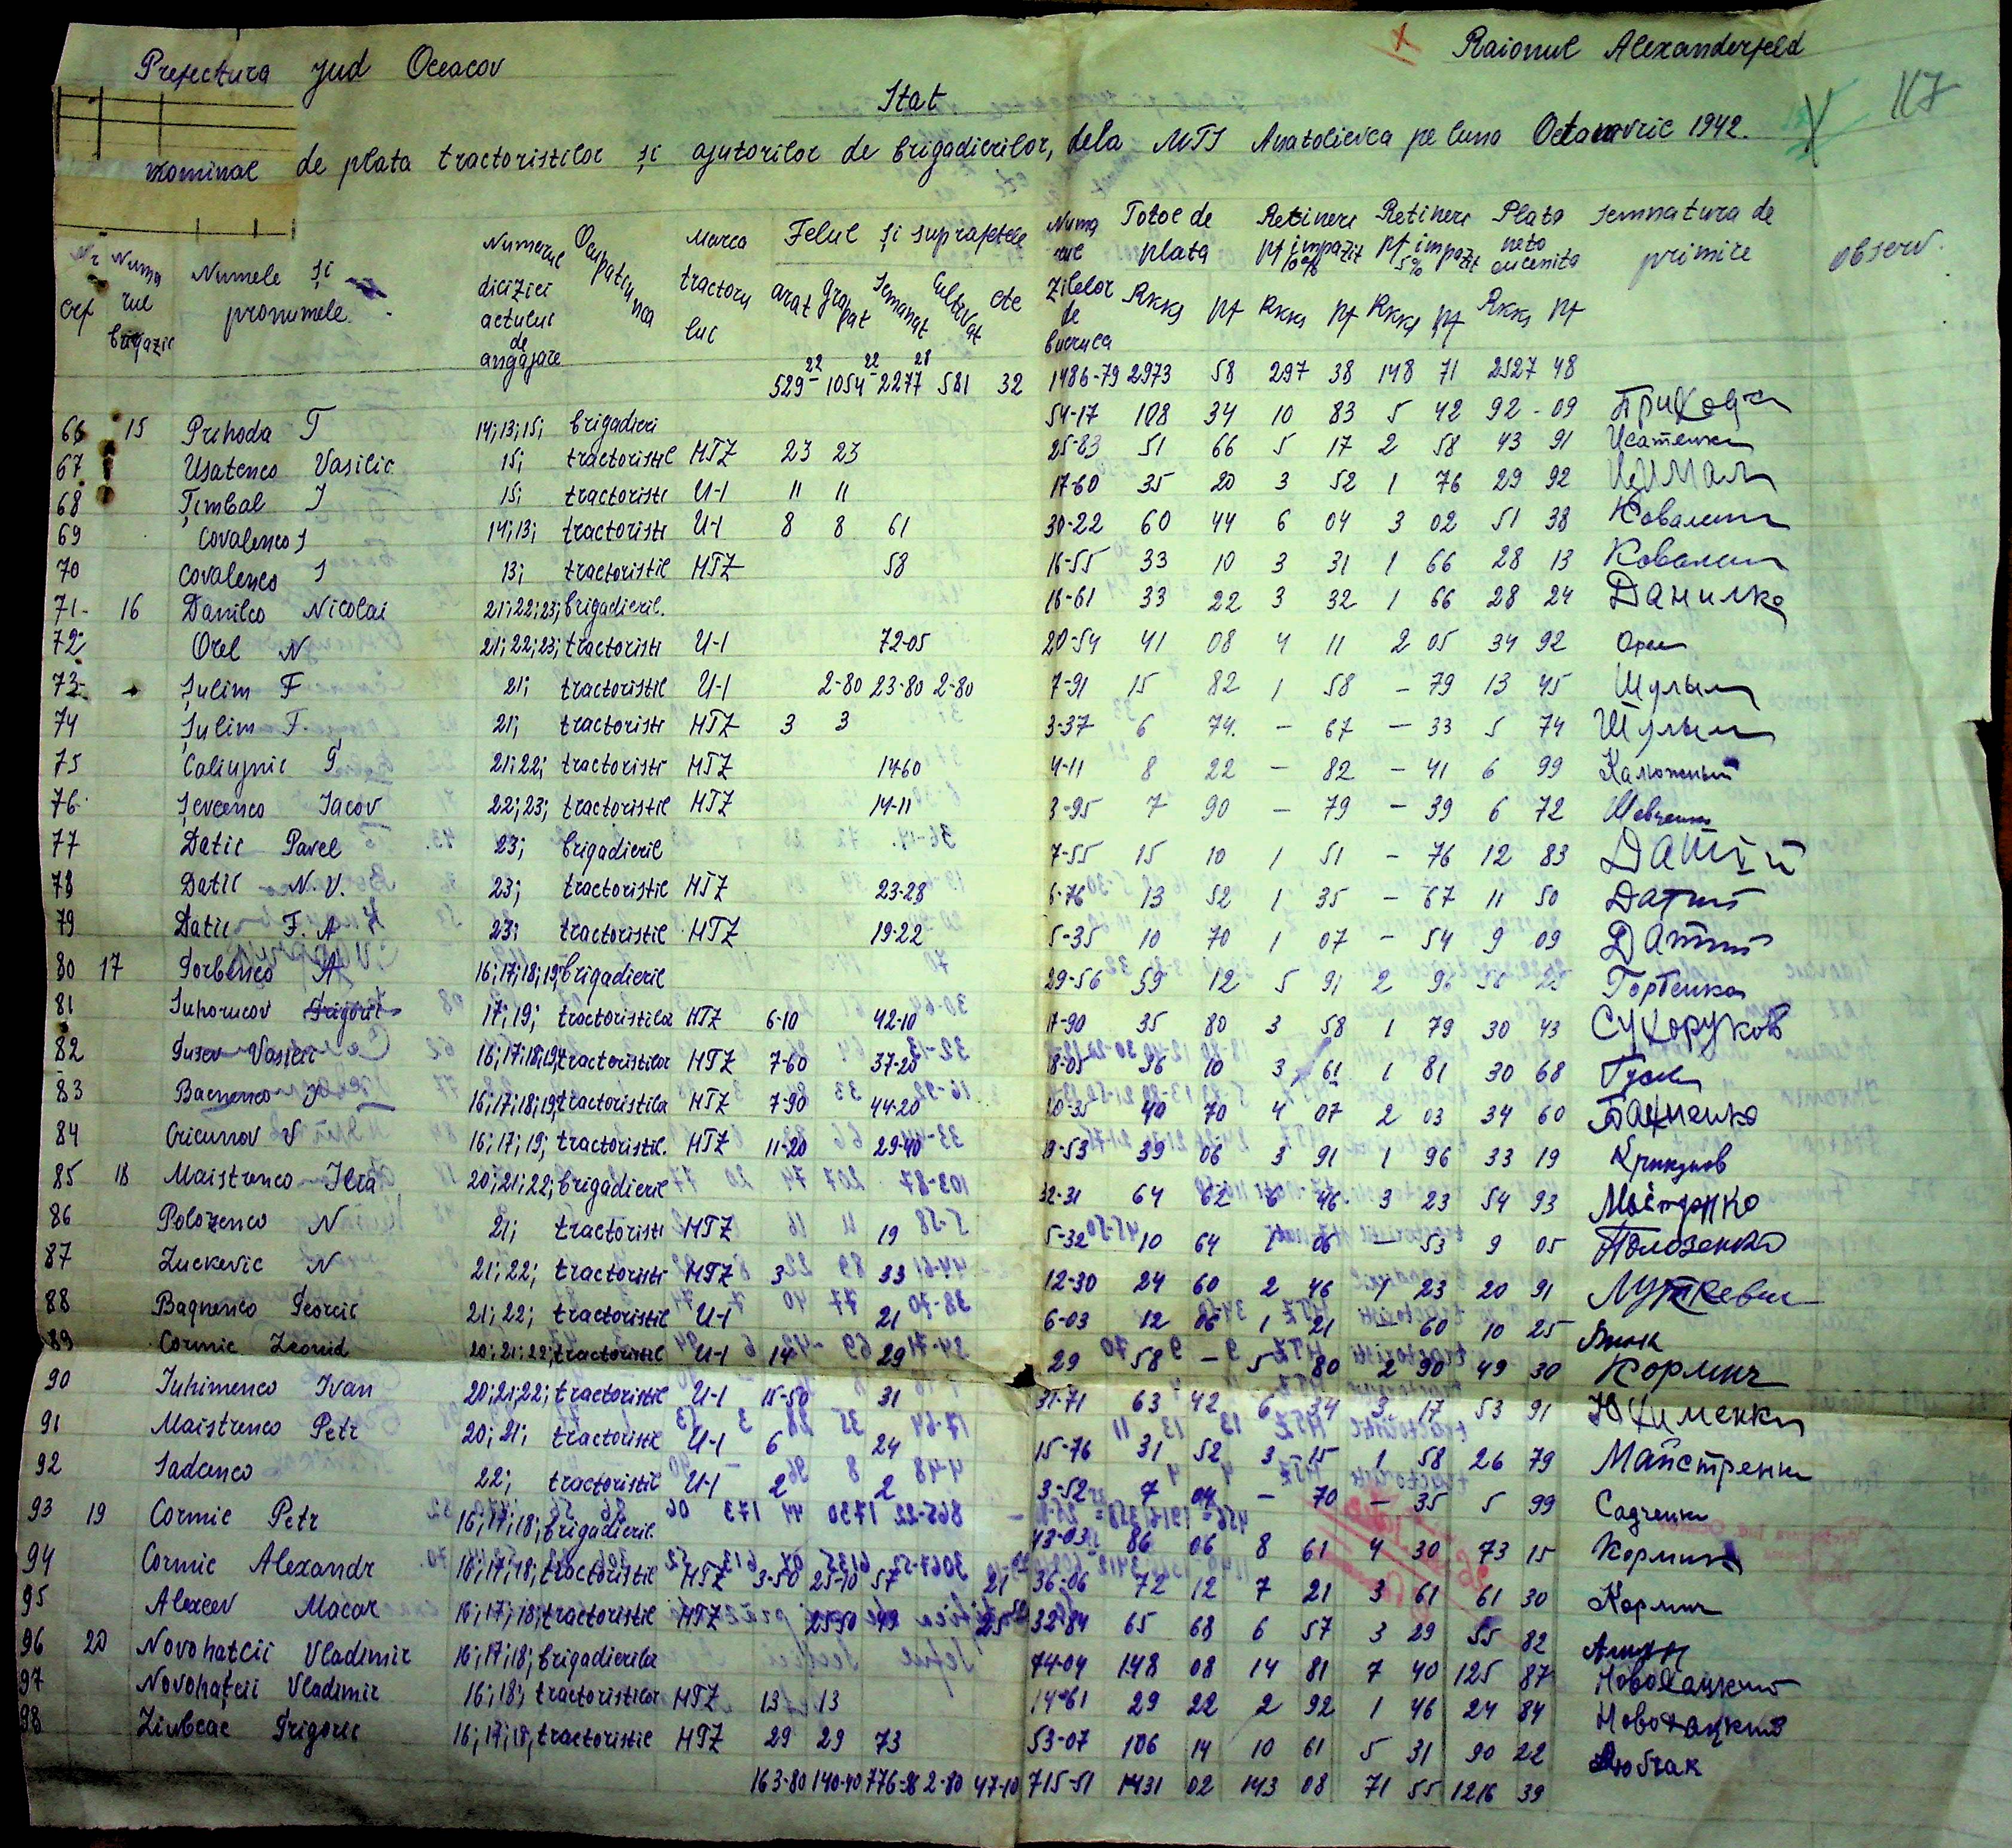 Prefectura jud Oceacov
Raionul Alexanderfeld
117
Stat
nominal de plata tractoristilor și ajutorilor de brigadierilor, dela MTS Anatolievca pe luna Octomvrie 1942.
Nr crt Numarul brigazii Numele și pronumele Numerul diciziei actului de angajare Ocupatiunea Marca tractorului Felul și suprafetele arat grapat Semanat Cultivat etc Numarul Zilelor de lucru Total de plata Rkks pf Retineri impozit 10% Rkks pf Retineri impozit 5% Rkks pf Plata neto cuvenita Rkks pf Semnatura de primire observ.
529-22 1054-22 2277-28 581 32 1486-79 2973 58 297 38 148 71 2527 48
66 15 Prihoda T 14;13;15; brigadieri 54-17 108 34 10 83 5 42 92-09 Приходa
67 Usatenco Vasilie 15; tractoristil HTZ 23 23 25-83 51 66 5 17 2 58 43 91 Усатенко
68 Țimbal I 15; tractoristi U-1 11 11 17-60 35 20 3 52 1 76 29 92 Цимбал
69 Covalenco I 14;13; tractoristi U-1 8 8 61 30-22 60 44 6 04 3 02 51 38 Коваленко
70 Covalenco I 13; tractoristil HTZ 58 16-55 33 10 3 31 1 66 28 13 Коваленко
71- 16 Danilco Nicolai 21;22;23; brigadieril. 16-61 33 22 3 32 1 66 28 24 Данилко
72 Orel N 21;22;23; tractoristi U-1 72-05 20-54 41 08 4 11 2 05 34 92 Орел
73- Șulim F 21; tractoristil U-1 2-80 23-80 2-80 7-91 15 82 1 58 - 79 13 45 Шулым
74 Șulim F. 21; tractoristi HTZ 3 3 3-37 6 74. - 67 - 33 5 74 Шулым
75 Caliujnic G 21;22; tractoristi HTZ 14-60 4-11 8 22 - 82 - 41 6 99 Калюжный
76 Șevcenco Iacov 22;23; tractoristil HTZ 14-11 3-95 7 90 - 79 - 39 6 72 Шевченко
77 Datic Pavel 23; brigadieril 7-55 15 10 1 51 - 76 12 83 Датій
78 Datic N. V. 23; tractoristil HTZ 23-28 6-76 13 52 1 35 - 67 11 50 Датий
79 Datic F. A 23; tractoristil HTZ 19-22 5-35 10 70 1 07 - 54 9 09 Датий
80 17 Gorbenco A 16;17;18;19; brigadieril 29-56 59 12 5 91 2 96 50 25 Горбенко
81 Suhorucov Grigorie 17;19; tractoristilor HTZ 6-10 42-10 17-90 35 80 3 58 1 79 30 43 Сухоруков
82 Gusev Vasilie 16;17;18;19; tractoristilor HTZ 7-60 37-20 18-05 36 10 3 61 1 81 30 68
83 Bacnenco I 16;17;18;19; tractoristilor HTZ 7-90 44-20 20-35 40 70 4 07 2 03 34 60 Бахненко
84 Cricunov I 16;17;19; tractoristil. HTZ 11-20 29-40 19-53 39 06 3 91 1 96 33 19 Крикунов
85 18 Maistrenco Ilia 20;21;22; brigadieril 32-31 64 62 6 46. 3 23 54 93 Майстренко
86 Polozenco N 21; tractoristi HTZ 19 5-32 10 64 1 06 - 53 9 05 Полозенко
87 Luckevic N 21;22; tractoristi HTZ 3 33 12-30 24 60 2 46 1 23 20 91 Луткевич
88 Bagnenco Georcic 21;22; tractoristil U-1 21 6-03 12 06 1 21 - 60 10 25
89 Cormic Leonid 20;21;22; tractoristil U-1 14 29 29 58 - 5 80 2 90 49 30 Кормич
90 Iuhimenco Ivan 20;21;22; tractoristil U-1 15-50 31 31-71 63 42 6 34 3 17 53 91 Юхименко
91 Maistrenco Petr 20;21; tractoristil U-1 6 24 15-76 31 52 3 15 1 58 26 79 Майстренко
92 Sadcenco 22; tractoristil U-1 2 2 3-52 7 04 - 70 - 35 5 99 Садченко
93 19 Cormic Petr 16;17;18; brigadieril. 43-03 86 06 8 61 4 30 73 15 Кормич
94 Cormic Alexandr 16;17;18; tractoristil HTZ 3-50 25-10 57 21 36-06 72 12 7 21 3 61 61 30 Кормич
95 Alexeev Macar 16;17;18; tractoristil HTZ 25-30 49 25 32-84 65 68 6 57 3 29 55 82
96 20 Novohațcii Vladimir 16;17;18; brigadierilor 74-04 148 08 14 81 7 40 125 87 Новохацкий
97 Novohațcii Vladimir 16;18; tractoristilor HTZ 13 13 14-61 29 22 2 92 1 46 24 84 Новохацкий
98 Liubceac Grigorie 16;17;18; tractoristil HTZ 29 29 73 53-07 106 14 10 61 5 31 90 22 Любчак
163-80 140-40 776-96 2-80 47-10 715-51 1431 02 143 08 71 55 1216 39